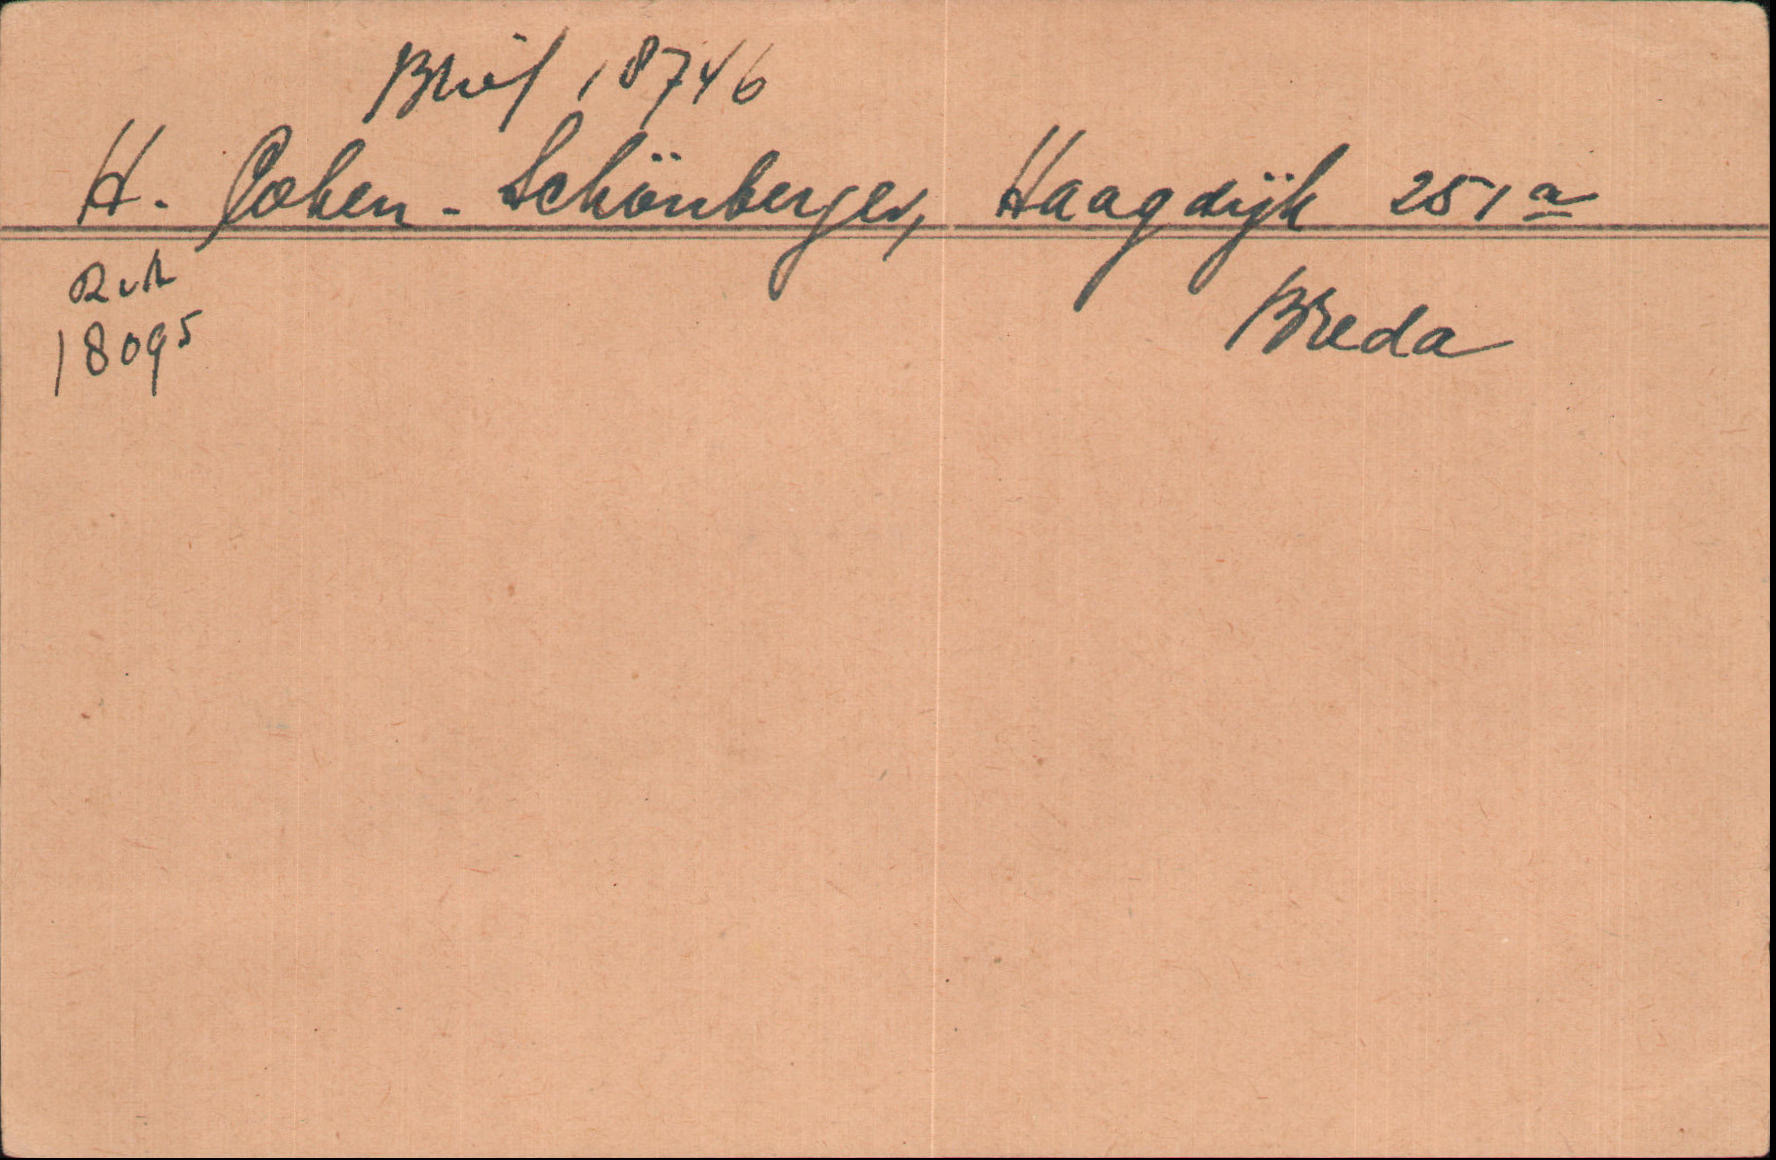 Brief 18746
H. Cohen - Schönberger, Haagdijk 251a
18095
Breda